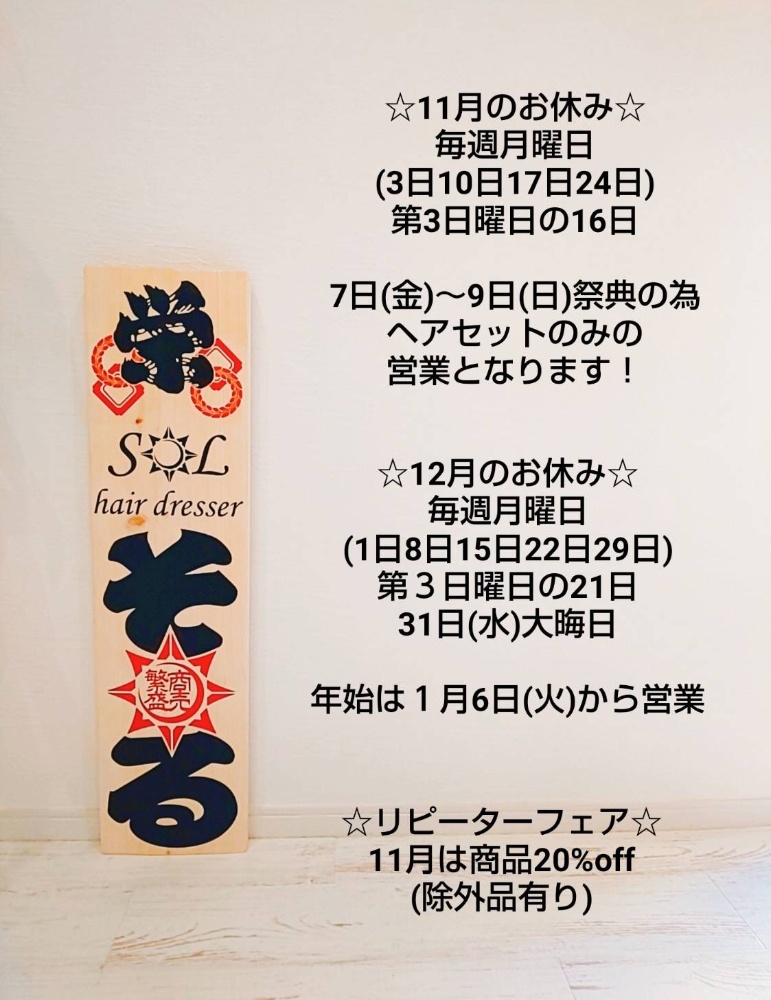 ☆11月のお休み☆
毎週月曜日
(3日10日17日24日)
第3日曜日の16日
7日(金)～9日(日)祭典の為
ヘアセットのみの
営業となります！
☆12月のお休み☆
毎週月曜日
(1日8日15日22日29日)
第３日曜日の21日
31日(水)大晦日
年始は１月6日(火)から営業
☆リピーターフェア☆
11月は商品20%off
(除外品有り)
SOL
hair dresser
そ
商売
繁盛
る